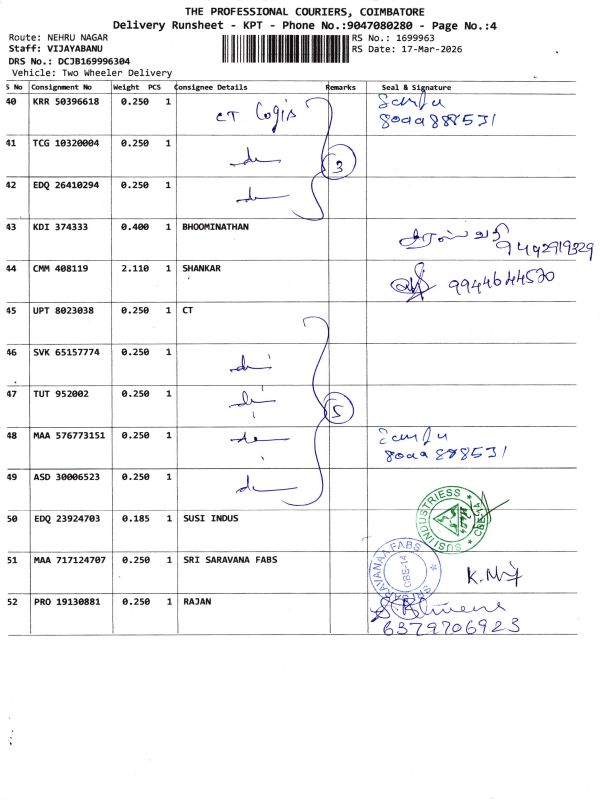 THE PROFESSIONAL COURIERS, COIMBATORE
Delivery Runsheet - KPT - Phone No.:9047080280 - Page No.:4
Route: NEHRU NAGAR RS No.: 1699963
Staff: VIJAYABANU RS Date: 17-Mar-2026
DRS No.: DCJB169996304
Vehicle: Two Wheeler Delivery
S No Consignment No Weight PCS Consignee Details Remarks Seal & Signature
40 KRR 50396618 0.250 1 CT Logis
41 TCG 10320004 0.250 1 3
42 EDQ 26410294 0.250 1
43 KDI 374333 0.400 1 BHOOMINATHAN
44 CMM 408119 2.110 1 SHANKAR 9944644570
45 UPT 8023038 0.250 1 CT
46 SVK 65157774 0.250 1
47 TUT 952002 0.250 1 5
48 MAA 576773151 0.250 1
49 ASD 30006523 0.250 1
50 EDQ 23924703 0.185 1 SUSI INDUS SUSI INDUSTRIESS
51 MAA 717124707 0.250 1 SRI SARAVANA FABS CBE-14
52 PRO 19130881 0.250 1 RAJAN
6379706923